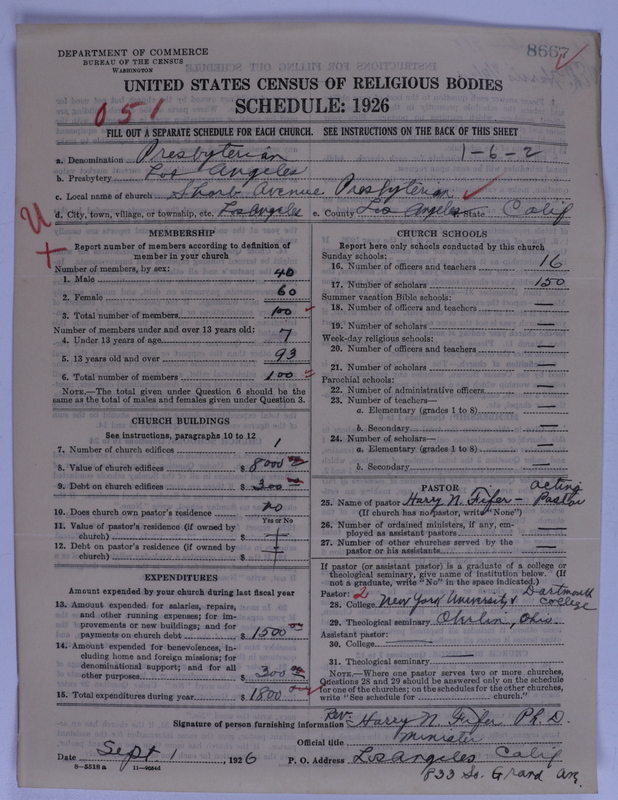 DEPARTMENT OF COMMERCE
BUREAU OF THE CENSUS
WASHINGTON
8667
UNITED STATES CENSUS OF RELIGIOUS BODIES
SCHEDULE: 1926
051
FILL OUT A SEPARATE SCHEDULE FOR EACH CHURCH. SEE INSTRUCTIONS ON THE BACK OF THIS SHEET
a. Denomination Presbyterian 1-6-2
b. Presbytery Los Angeles
c. Local name of church Shorb Avenue Presbyterian
d. City, town, village, or township, etc. Los Angeles e. County Los Angeles State Calif
MEMBERSHIP
Report number of members according to definition of
member in your church
Number of members, by sex:
1. Male 40
2. Female 60
3. Total number of members 100
Number of members under and over 13 years old:
4. Under 13 years of age 7
5. 13 years old and over 93
6. Total number of members 100
NOTE.—The total given under Question 6 should be the
same as the total of males and females given under Question 3.
CHURCH BUILDINGS
See instructions, paragraphs 10 to 12
7. Number of church edifices 1
8. Value of church edifices $ 8000 00
9. Debt on church edifices $ 300 00
10. Does church own pastor's residence no
Yes or No
11. Value of pastor's residence (if owned by
church) $
12. Debt on pastor's residence (if owned by
church) $
EXPENDITURES
Amount expended by your church during last fiscal year
13. Amount expended for salaries, repairs,
and other running expenses; for im-
provements or new buildings; and for
payments on church debt $ 1500 00
14. Amount expended for benevolences, in-
cluding home and foreign missions; for
denominational support; and for all
other purposes $ 300 00
15. Total expenditures during year $ 1800
CHURCH SCHOOLS
Report here only schools conducted by this church
Sunday schools:
16. Number of officers and teachers 16
17. Number of scholars 150
Summer vacation Bible schools:
18. Number of officers and teachers —
19. Number of scholars —
Week-day religious schools:
20. Number of officers and teachers —
21. Number of scholars —
Parochial schools:
22. Number of administrative officers —
23. Number of teachers—
a. Elementary (grades 1 to 8) —
b. Secondary —
24. Number of scholars—
a. Elementary (grades 1 to 8) —
b. Secondary —
PASTOR
25. Name of pastor Harry N. Fifer - acting Pastor
(If church has no pastor, write "None")
26. Number of ordained ministers, if any, em-
ployed as assistant pastors —
27. Number of other churches served by the
pastor or his assistants —
If pastor (or assistant pastor) is a graduate of a college or
theological seminary, give name of institution below. (If
not a graduate, write "No" in the space indicated.)
Pastor: 2
28. College New York University & Dartmouth College
29. Theological seminary Oberlin, Ohio.
Assistant pastor:
30. College
31. Theological seminary
NOTE.—Where one pastor serves two or more churches,
Questions 28 and 29 should be answered only on the schedule
for one of the churches; on the schedules for the other churches,
write "See schedule for church."
Signature of person furnishing information Rev. Harry N. Fifer Ph. D.
Official title Minister
Date Sept 1, 1926 P. O. Address Los Angeles Calif
8-5518a 11-9056d 833 So. Grand Ave.